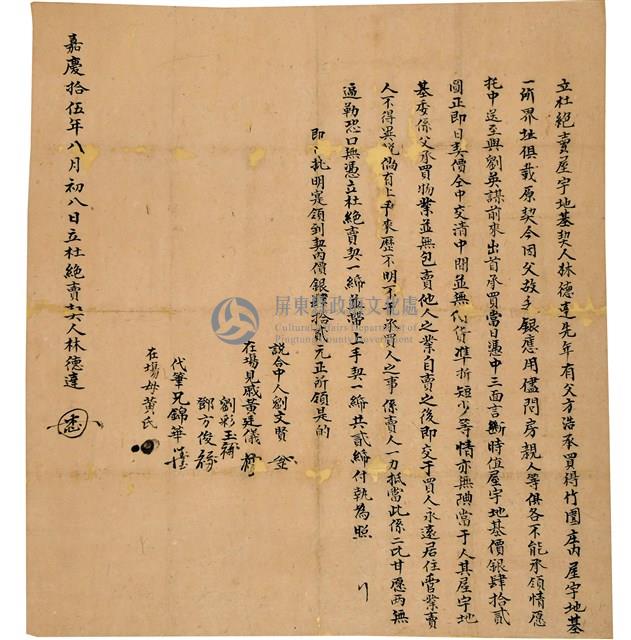 立杜絕賣屋宇地基契人林德達先年有父方浩承買得竹圍庄內屋宇地基
一所界址俱載原契今因父故乏銀應用儘問房親人等俱各不能承領情愿
托中送至與劉英謀前來出首承買當日憑中三面言斷時值屋宇地基價銀肆拾貳
圓正即日契價仝中交清中間並無代貨準折短少等情亦無典當于人其屋宇地
基委係父承買物業並無包賣他人之業自賣之後即交于買人永遠居住營業賣
人不得異說倘有上手來歷不明不干承買人之事係賣人一力抵當此係二比甘愿兩無
逼勒恐口無憑立杜絕賣契一紙並帶上手契一紙共貳紙付執為照
即日批明寔領到契內價銀肆拾貳元正所領是的
說合中人劉文賢
在場見戚黃廷儀
劉彩玉
鄧方俊
代筆兄錦華
在場母黃氏
嘉慶拾伍年八月初八日立杜絕賣契人林德達
屏東縣政府文化處
Cultural Affairs Department of
Pingtung County Government